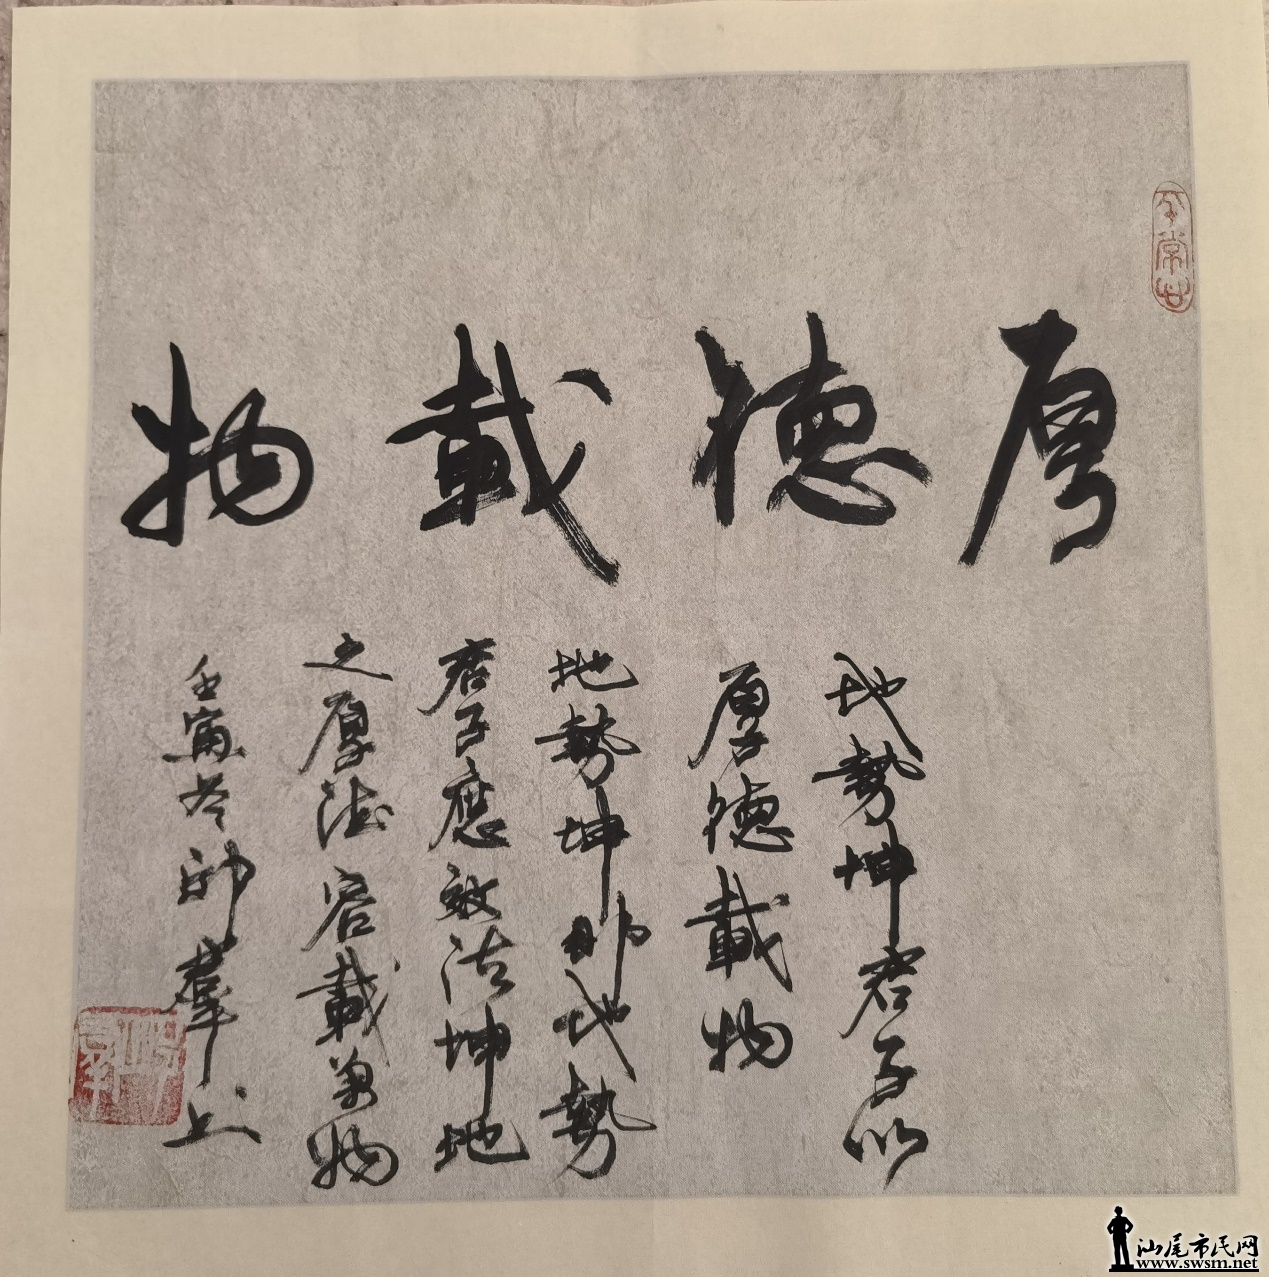 厚德載物
地勢坤君子以
厚德載物
地勢坤即地勢
君子應效法坤地
之厚德容載萬物
壬寅冬
羣
汕尾市民网
www.swsm.net